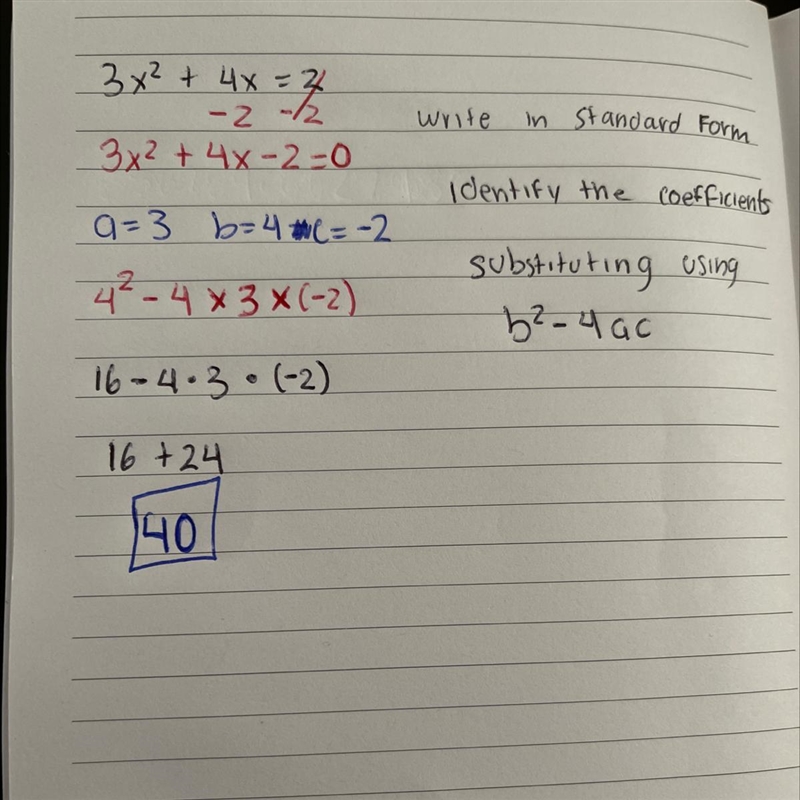 3x² + 4x = 2
-2 -2
write in standard form
3x² + 4x - 2 = 0
Identify the coefficients
a = 3 b = 4 c = -2
substituting using
4² - 4 × 3 × (-2)
b² - 4ac
16 - 4 · 3 · (-2)
16 + 24
40